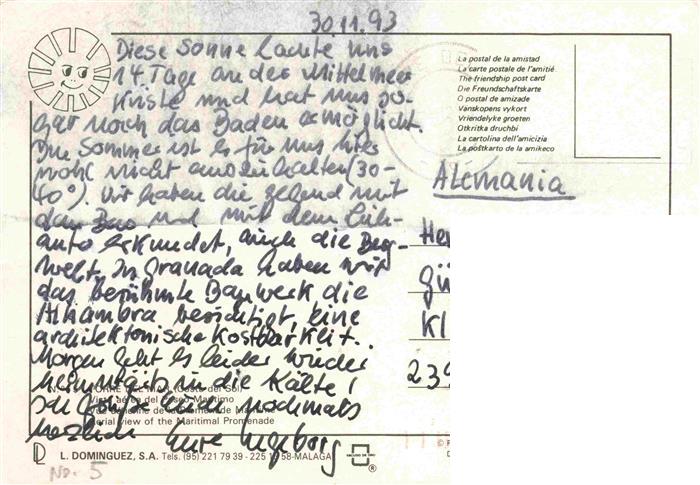 30.11.93
Diese Sonne lachte uns
14 Tage an der Mittelmeer
Küste und hat uns so-
gar noch das Baden ermöglicht.
Im Sommer ist es für uns hier
wohl nicht auszuhalten (30-
40°). Wir haben die Gegend mit
dem Bus und mit dem Leih-
auto erkundet, auch die Berg-
welt. In Granada haben wir
das berühmte Bauwerk die
Alhambra besichtigt, eine
architektonische Kostbarkeit.
Morgen geht es leider wieder
heimwärts in die Kälte!
Ich grüße Euch nochmals
herzlich Eure Ingeborg
La postal de la amistad
La carte postale de l'amitié
The friendship post card
Die Freundschaftskarte
O postal de amizade
Vanskopens vykort
Vriendelyke groeten
Otkritka druchbi
La cartolina dell'amicizia
La poŝtkarto de la amikeco
Alemania
He
gü
Kl
239
TORRE DEL MAR (Costa del Sol)
Vista aérea del Paseo Marítimo
Vue aérienne de la Promenade Maritime
Aerial view of the Maritimal Promenade
L. DOMINGUEZ, S.A. Tels. (95) 221 79 39 - 225 19 58-MALAGA
No. 5